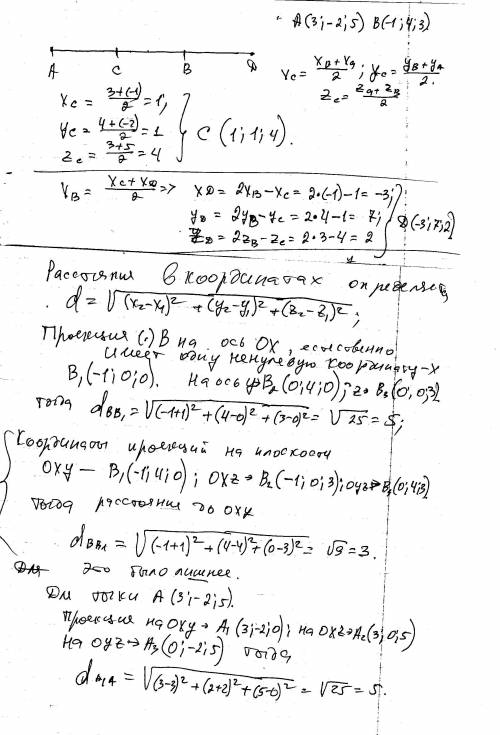 A(3;-2;5) B(-1;4;3)
A C B D
x_C = (x_B + x_A)/2; y_C = (y_B + y_A)/2.
z_C = (z_A + z_B)/2
x_C = (3+(-1))/2 = 1;
y_C = (4+(-2))/2 = 1
z_C = (3+5)/2 = 4
} C (1; 1; 4).
x_B = (x_C + x_D)/2 => x_D = 2x_B - x_C = 2·(-1) - 1 = -3;
y_D = 2y_B - y_C = 2·4 - 1 = 7;
z_D = 2z_B - z_C = 2·3 - 4 = 2
} D(-3; 7; 2)
Расстояния в координатах определяется
d = √((x₂-x₁)² + (y₂-y₁)² + (z₂-z₁)²);
Проекция (·) B на ось OX, естественно
имеет одну ненулевую координату - x
B₁(-1; 0; 0). На ось y B₂(0; 4; 0); z B₃(0; 0; 3)
тогда d_BB₁ = √((-1+1)² + (4-0)² + (3-0)²) = √25 = 5;
Координаты проекций на плоскости
OXY — B₁(-1; 4; 0); OXZ → B₂(-1; 0; 3); OYZ → B₃(0; 4; 3)
тогда расстояния до OXY
d_BB₁ = √((-1+1)² + (4-4)² + (0-3)²) = √9 = 3.
Для это было лишнее.
Для точки A(3; -2; 5).
проекция на OXY → A₁(3; -2; 0); на OXZ → A₂(3; 0; 5)
на OYZ → A₃(0; -2; 5) тогда
d_A₁A = √((3-3)² + (2+2)² + (5-0)²) = √25 = 5.